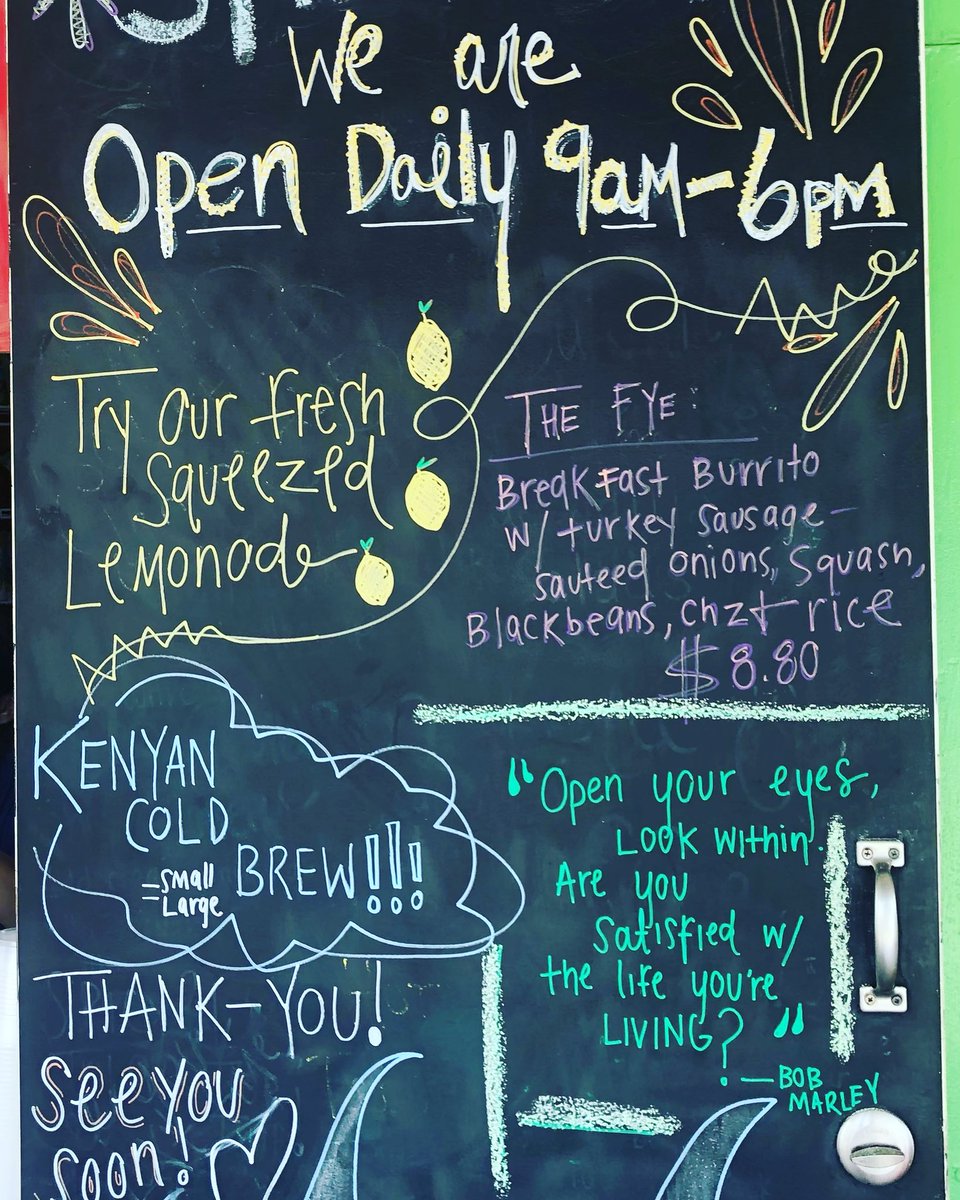 We are
Open Daily 9am-6pm
Try our fresh
squeezed
Lemonade
THE FYE:
BreakFast Burrito
w/ turkey sausage-
sauteed onions, Squash,
Blackbeans, chz + rice
$8.80
KENYAN
COLD
BREW!!!
-Small
-Large
"Open your eyes,
Look within.
Are you
Satisfied w/
the life you're
LIVING?"
-BOB
MARLEY
THANK-YOU!
See you
soon!